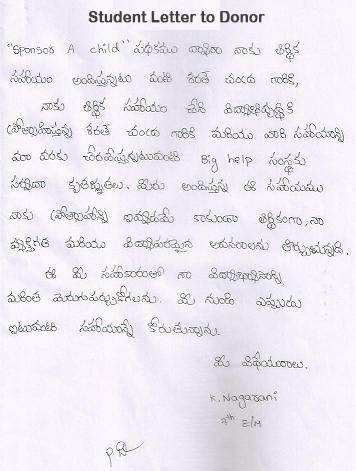 Student Letter to Donor
"Sponsor A child" పథకము ద్వారా నాకు ఆర్థిక
సహాయం అందిస్తున్నటు వంటి శరత్ చంద్ర గారికి,
నాకు ఆర్థిక సహాయం చేసి విద్యాభివృద్ధికి
ప్రోత్సాహిస్తున్న శరత్ చంద్ర గారికి మరియు వారి సహాయాన్ని
మా వరకు చేరవేస్తున్నటువంటి Big help సంస్థకు
సర్వదా కృతజ్ఞతలు. మీరు అందిస్తున్న ఈ సహాయము
నాకు ప్రోత్సాహాన్ని ఇవ్వడమే కాకుండా ఆర్థికంగా, నా
వ్యక్తిగత మరియు విద్యాపరమైన అవసరాలను తీర్చుతున్నది.
ఈ మీ సహకారంతో నా విద్యాభ్యాసాన్ని
మరింత మెరుగుపర్చుకోగలను. మీ నుండి ఎప్పుడు
ఇటువంటి సహాయాన్ని కోరుతున్నాను.
మీ విధేయురాలు.
K. Nagarani
7th E/M